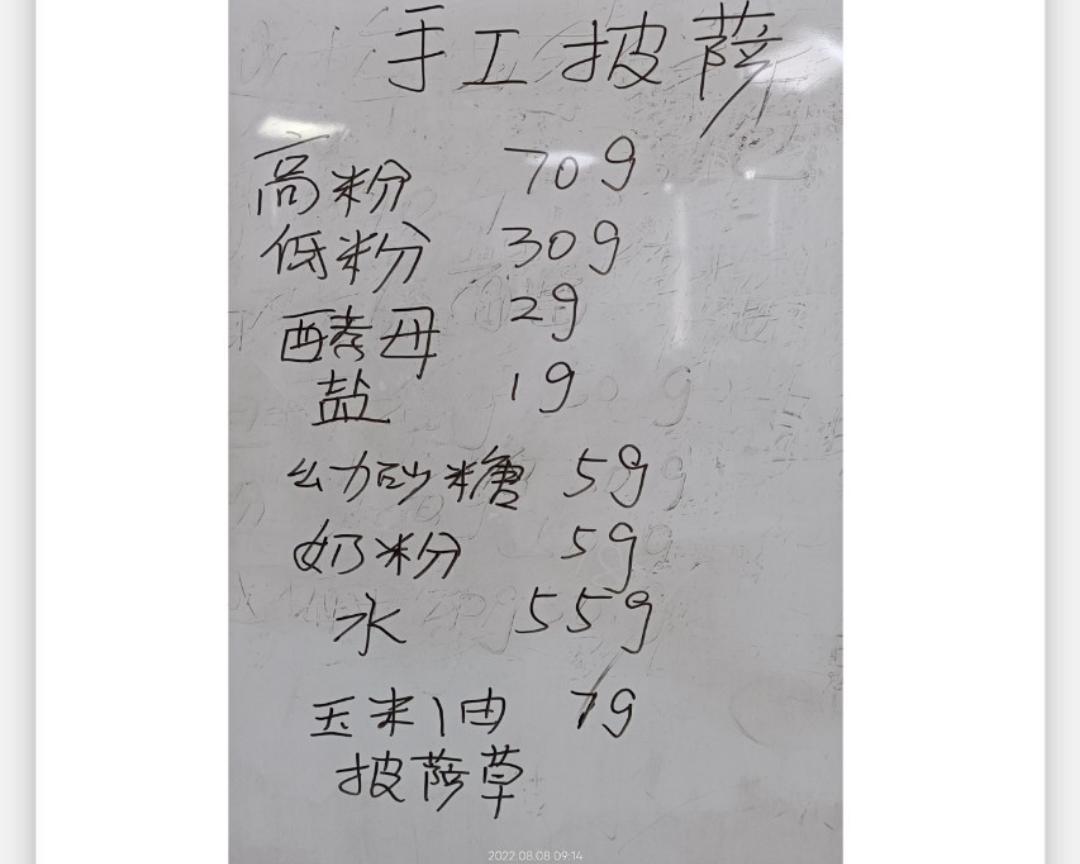 手工披萨
高粉 70g
低粉 30g
酵母 2g
盐 1g
幼砂糖 5g
奶粉 5g
水 55g
玉米油 7g
披萨草
2022.08.08 09:14